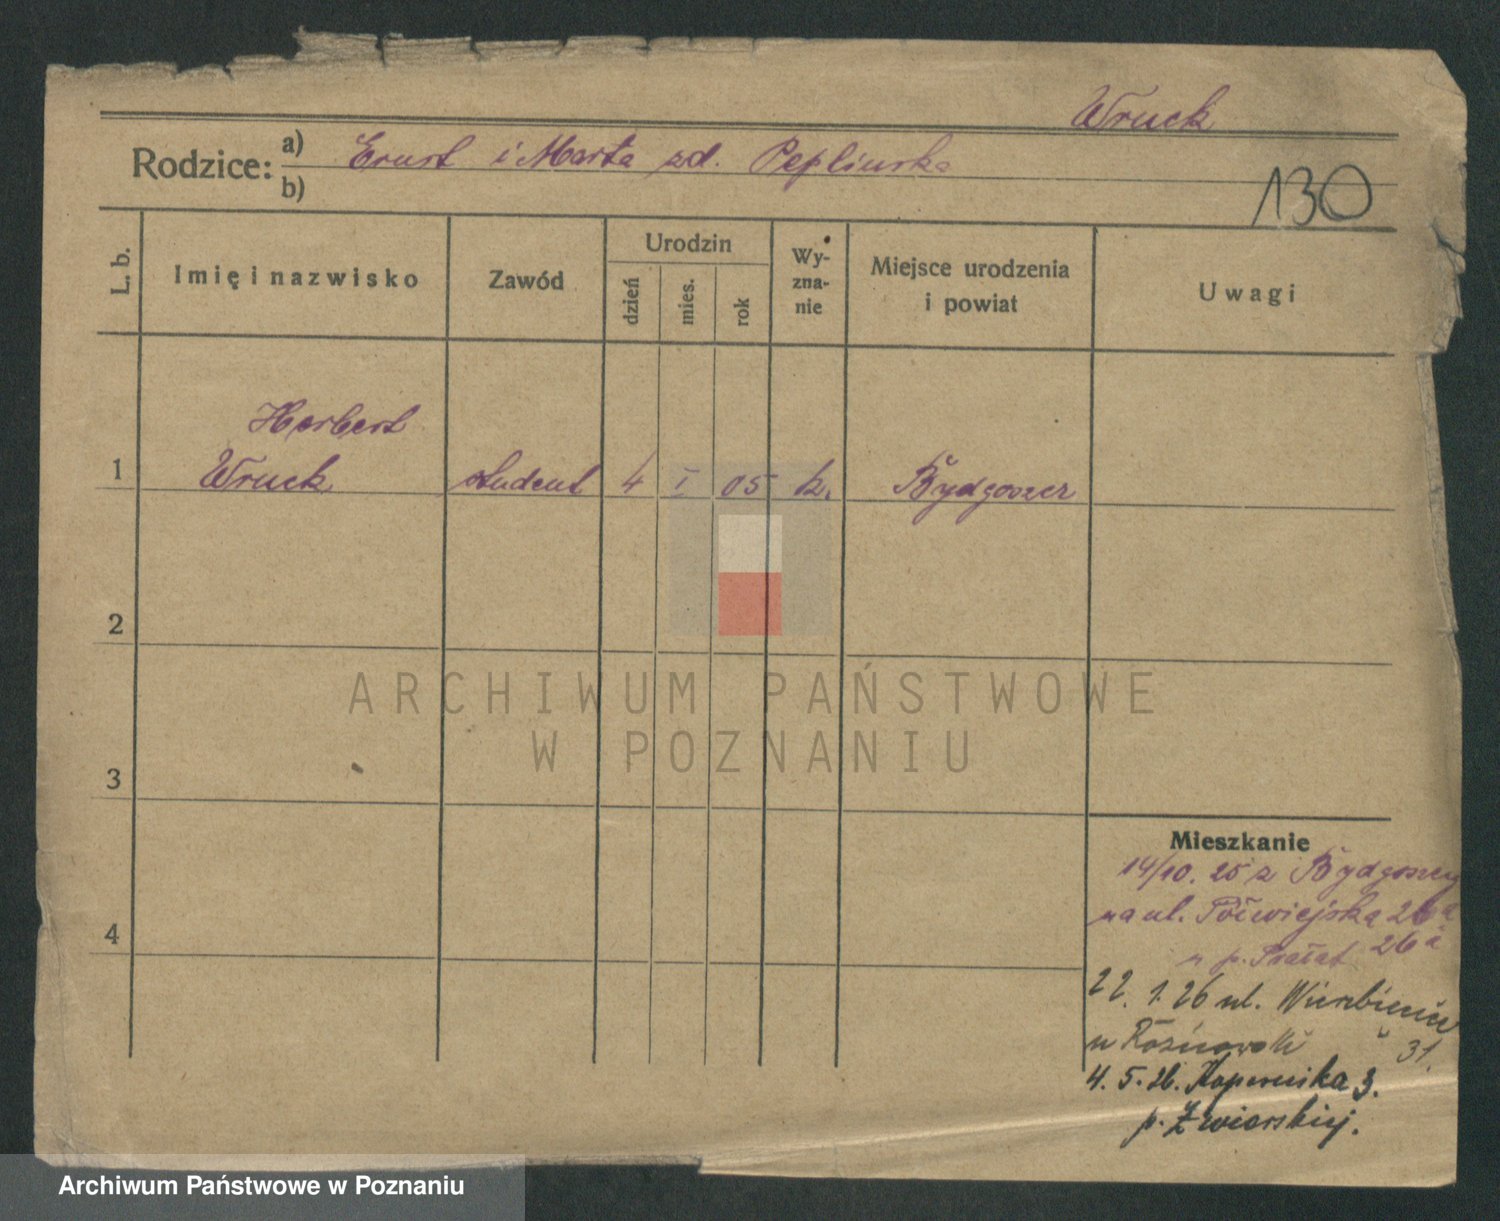 Wruck
Rodzice: a) Ernst i Marta zd. Peplinska
b)
130
L. b.
Imię i nazwisko
Zawód
Urodzin
dzień
mies.
rok
Wy-
zna-
nie
Miejsce urodzenia
i powiat
Uwagi
Herbert
1 Wruck student 4 I 05 k. Bydgoszcz
2
3
4
ARCHIWUM PAŃSTWOWE
W POZNANIU
Mieszkanie
14/10. 25 z Bydgoszczy
na ul. Półwiejską 26a
u p. Prałat 26a
22. 1. 26 ul. Wierzbięcice
u Rożnowski 31.
4. 5. 26. Kopernika 3.
p. Zwierskiej.
Archiwum Państwowe w Poznaniu